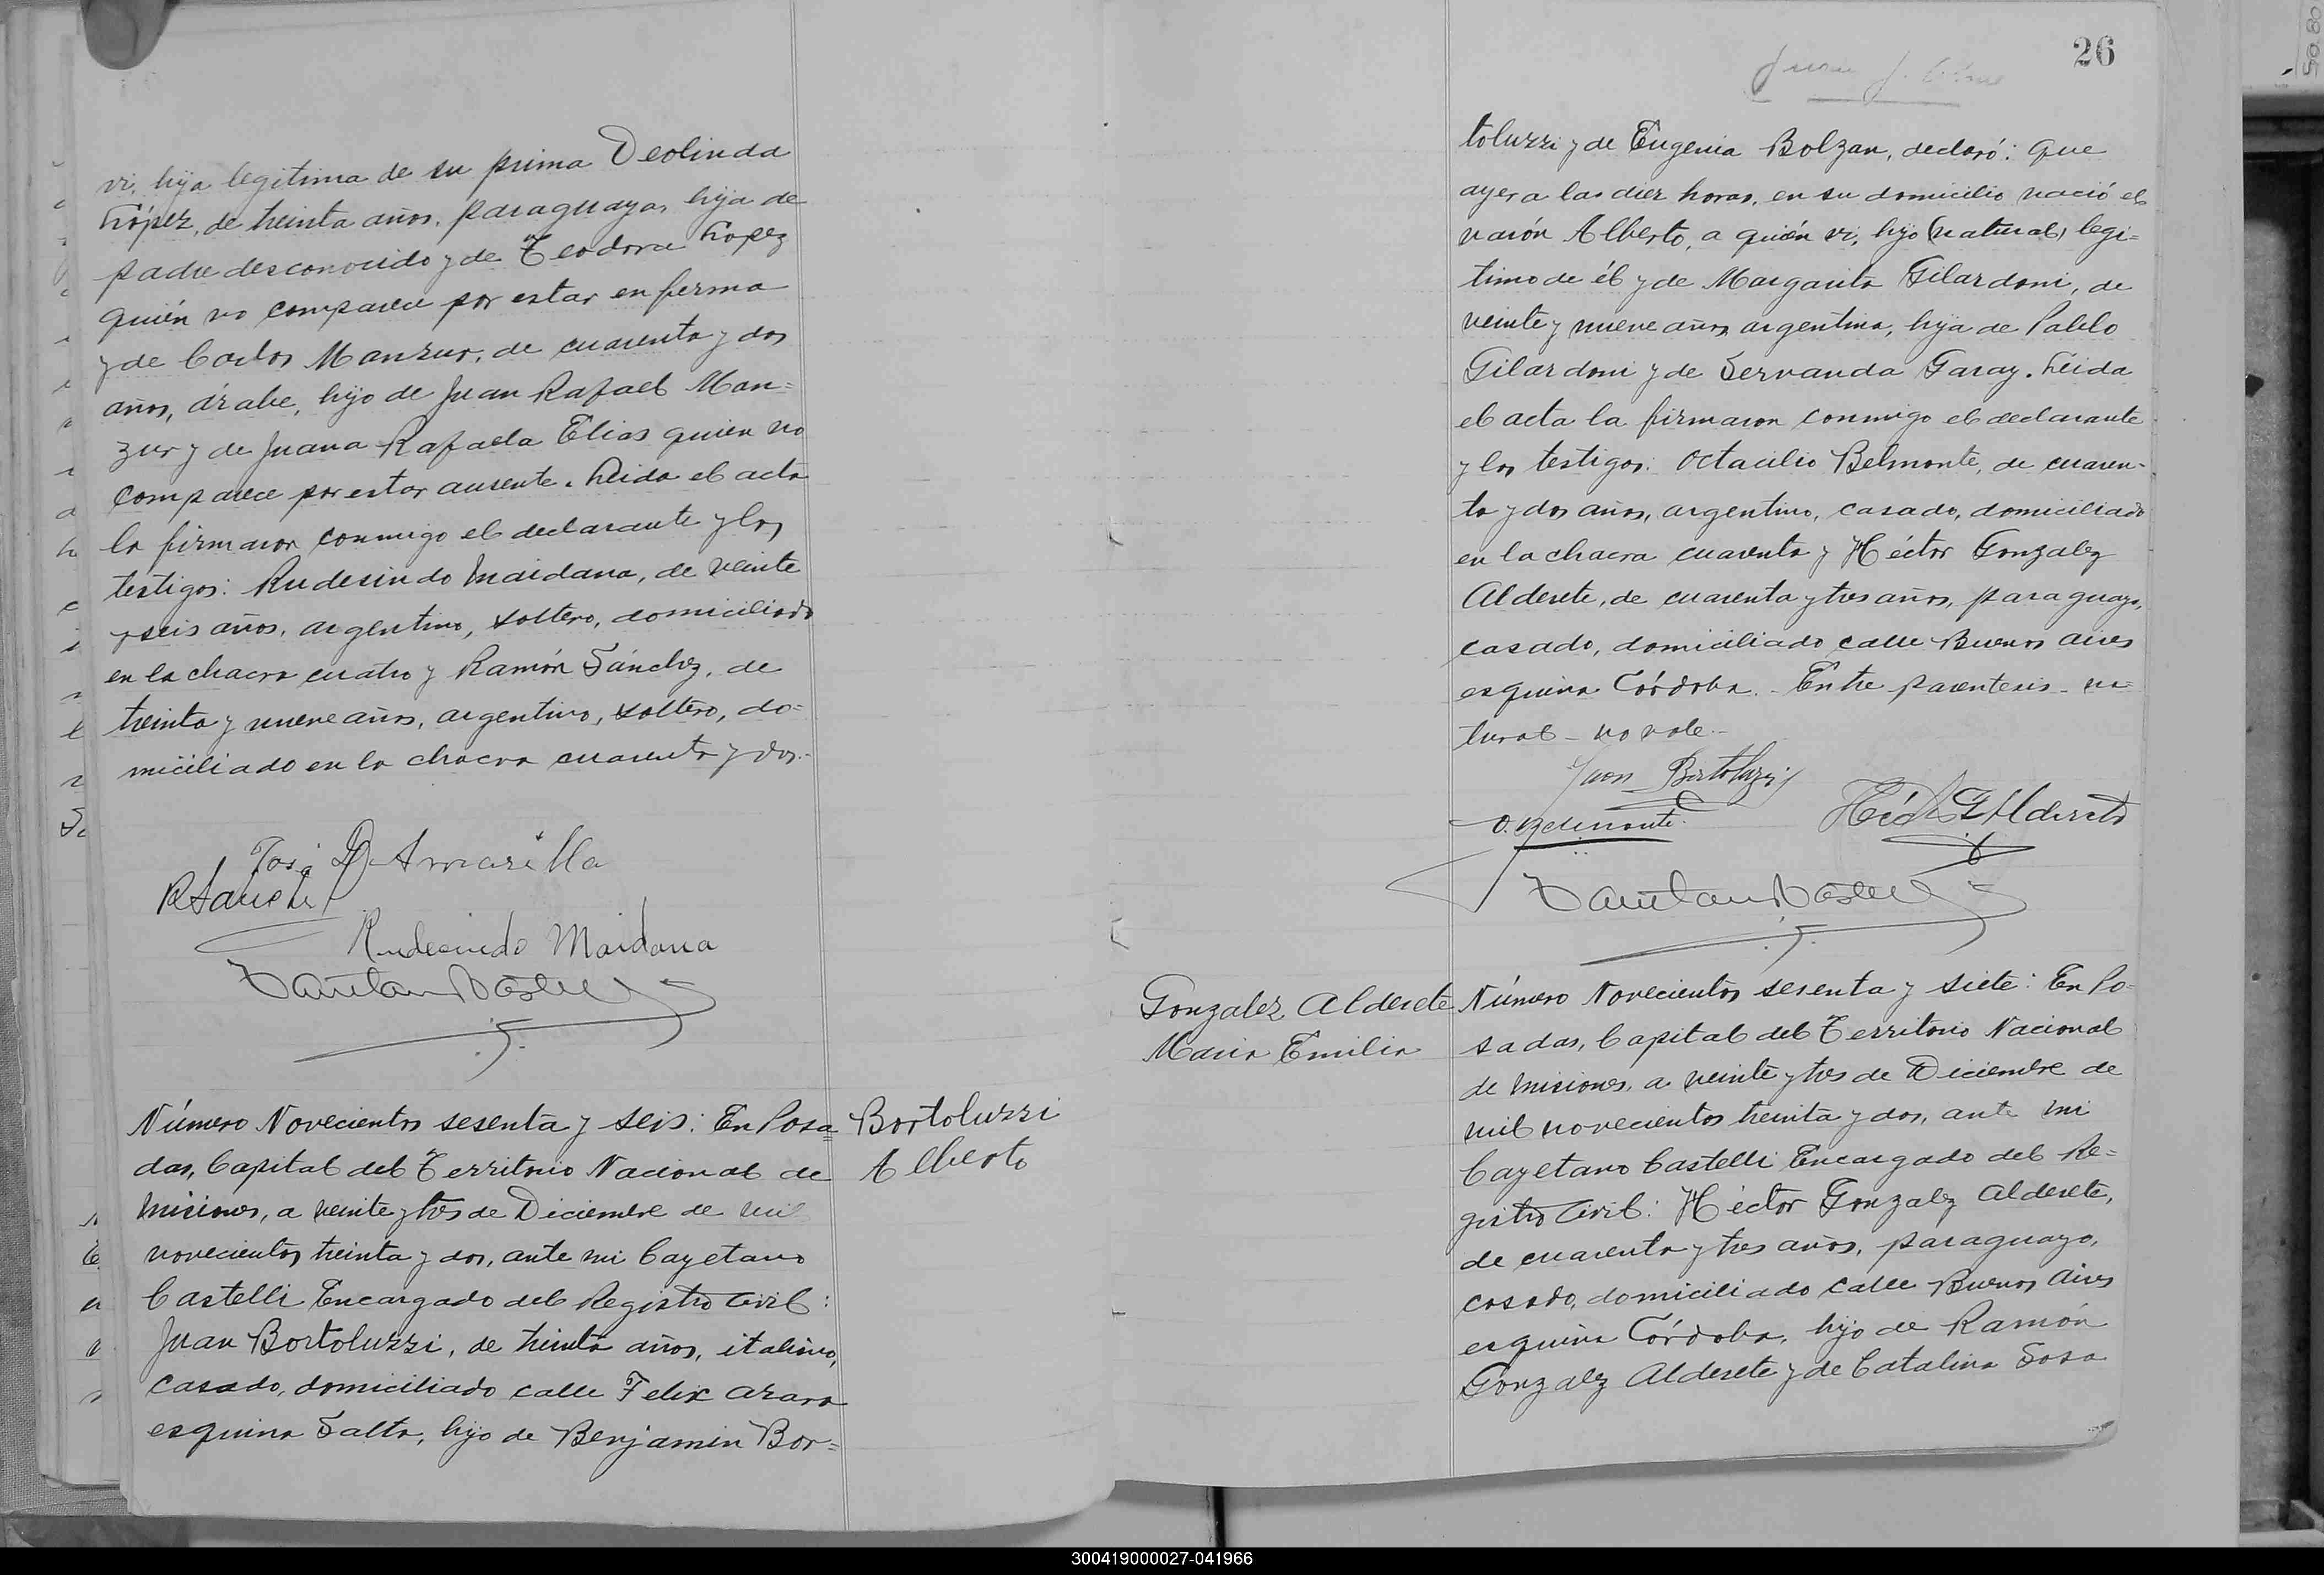 vi, hija legítima de su prima Deolinda
López, de treinta años, paraguaya, hija de
padre desconocido y de Teodora Lopez
quién no comparece por estar enferma
y de Carlos Manzur, de cuarenta y dos
años, árabe, hijo de Juan Rafael Man=
zur y de Juana Rafaela Elias quien no
comparece por estar ausente. Leida el acta
la firmaron conmigo el declarante y los
testigos: Rudesindo Maidana, de veinte
y seis años, argentino, soltero, domiciliado
en la chacra cuatro y Ramón Sánchez, de
treinta y nueve años, argentino, soltero, do=
miciliado en la chacra cuarenta y dos.-
José D. Amarilla
R Sanchez
Rudecindo Maidana
Número Novecientos sesenta y seis: En Posa=
das, Capital del Territorio Nacional de
Misiones, a veinte y tres de Diciembre de mil
novecientos treinta y dos, ante mi Cayetano
Castelli Encargado del Registro Civil:
Juan Bortoluzzi, de treinta años, italiano,
casado, domiciliado calle Felix Azara
esquina Salta, hijo de Benjamin Bor=
Bortoluzzi
Alberto
26
toluzzi y de Eugenia Bolzan, declaró: Que
ayer a las diez horas, en su domicilio nació el
varón Alberto, a quién vi, hijo (natural) legi=
timo de él y de Margarita Gilardoni, de
veinte y nueve años, argentina, hija de Pablo
Gilardoni y de Servanda Garay. Leida
el acta la firmaron conmigo el declarante
y los testigos: Octacilio Belmonte, de cuaren-
ta y dos años, argentino, casado, domiciliado
en la chacra cuarenta y Héctor Gonzalez
Alderete, de cuarenta y tres años, paraguayo,
casado, domiciliado calle Buenos Aires
esquina Córdoba. - Entre parentesis - na=
tural - no vale.-
Juan Bortoluzzi
O. Belmonte.
Héctor G Alderete
Gonzalez Alderete
Maria Emilia
Número Novecientos sesenta y siete: En Po=
sadas, Capital del Territorio Nacional
de Misiones, a veinte y tres de Diciembre de
mil novecientos treinta y dos, ante mi
Cayetano Castelli Encargado del Re=
gistro Civil: Héctor Gonzalez Alderete,
de cuarenta y tres años, paraguayo,
casado, domiciliado calle Buenos Aires
esquina Córdoba, hijo de Ramón
Gonzalez Alderete y de Catalina Sosa
300419000027-041966